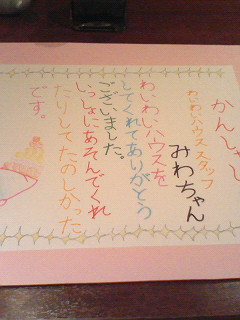 かんしゃじょう
わいわいハウス スタッフ
みわちゃん
わいわいハウスを
してくれてありがとう
ございました。
いっしょにあそんでくれ
たりしてたのしかった
です。